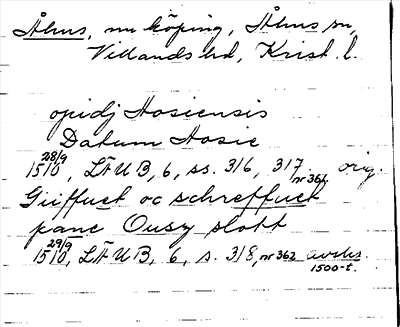 Åhus, nu köping, Åhus sn,
Villands hd, Krist. l.
opidj Hosiensis
Datum Hosie
28/9
1510, LÄUB, 6, ss. 316, 317 orig.
nr 361
Giiffuet oc schreffuet
pane Ousy slott
29/9
1510, LÄUB, 6, s. 318, nr 362 avskr.
1500-t.